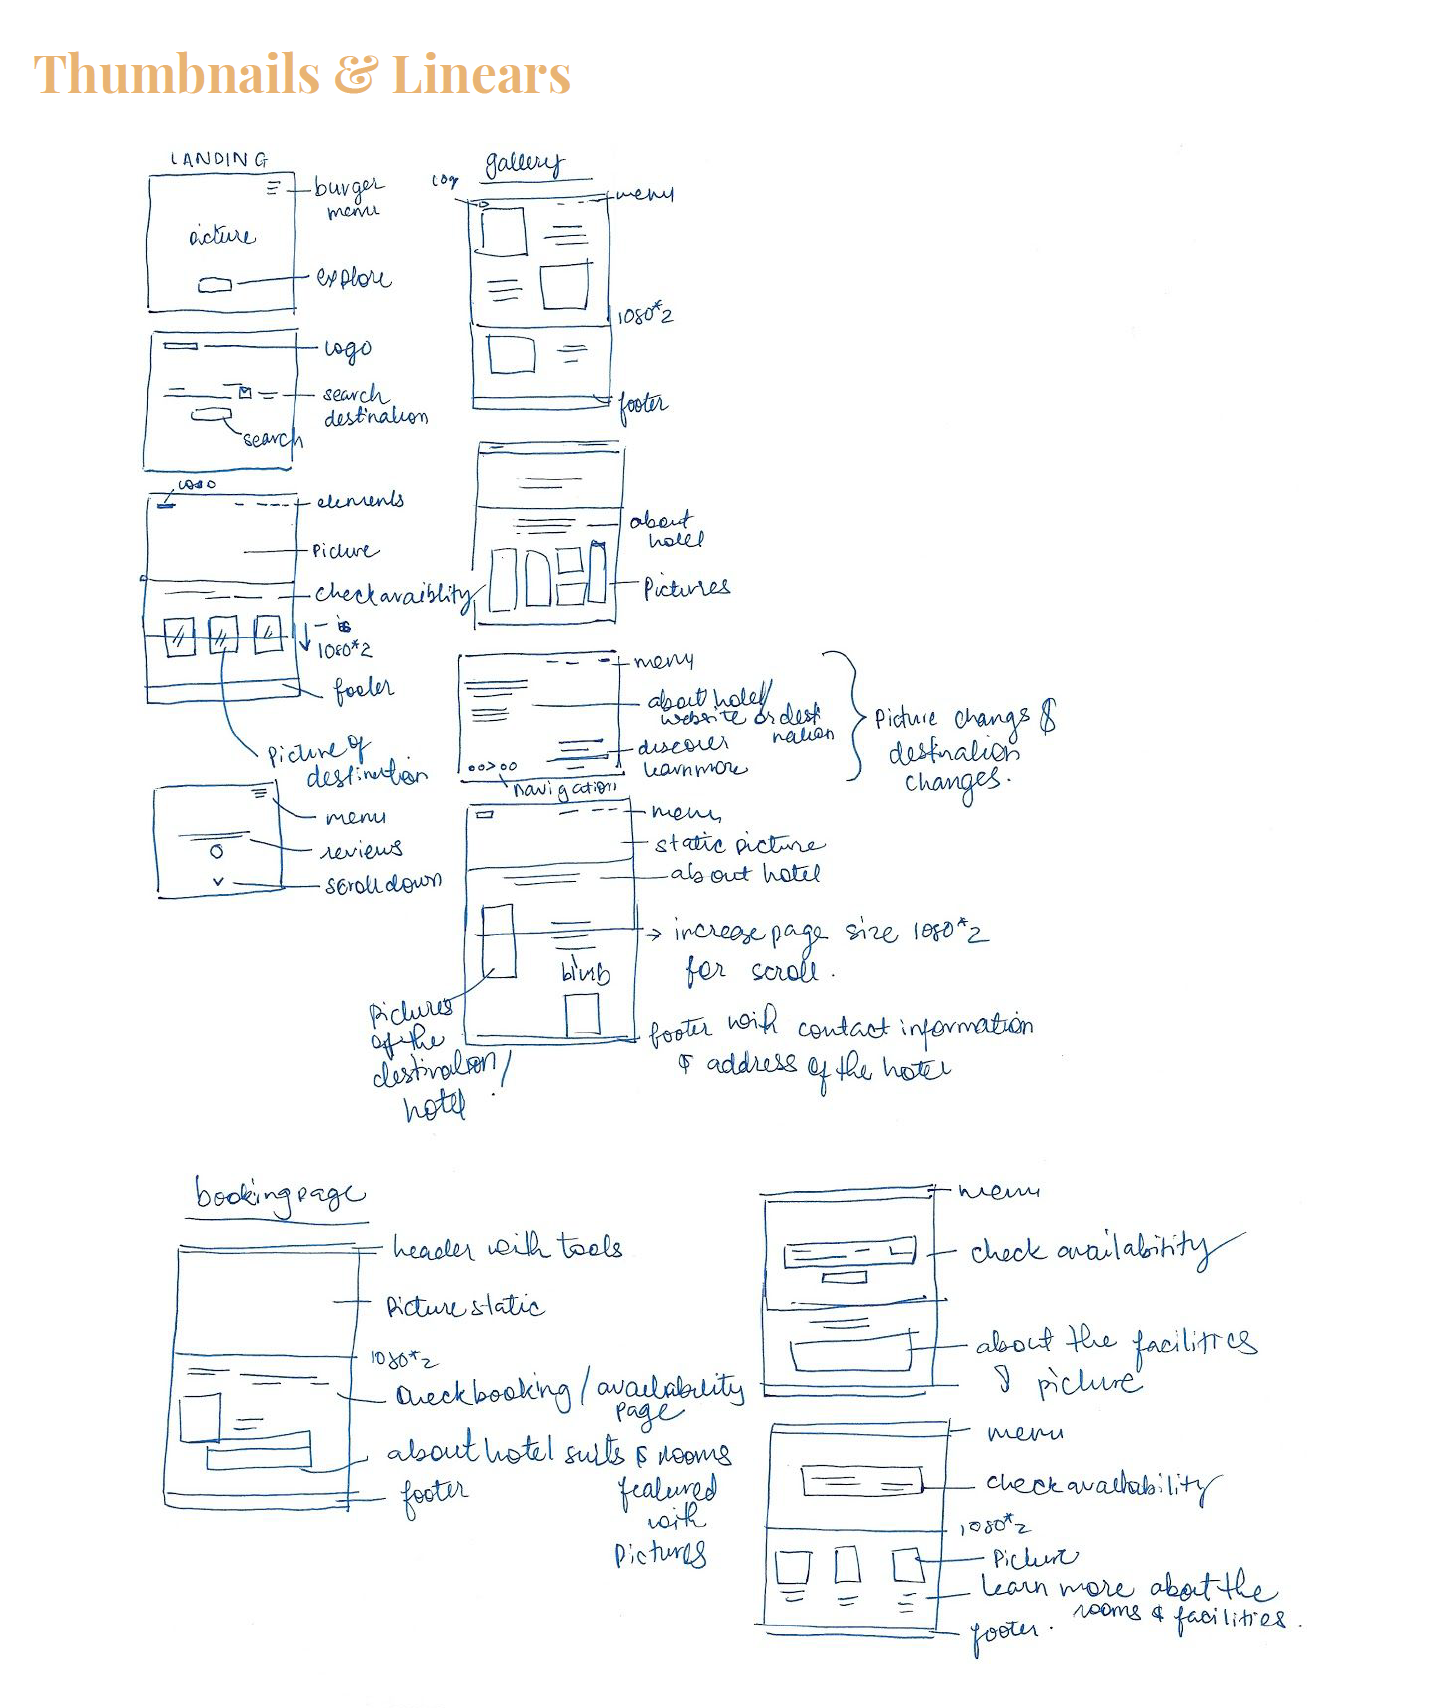 Thumbnails & Linears
LANDING
burger
menu
picture
explore
logo
search
destination
search
logo
elements
picture
check avaiblity
1080*2
footer
picture of
destination
menu
reviews
scroll down
gallery
log
menu
1080*2
footer
about
hotel
Pictures
menu
about hotel/
website or dest
nation
discover
learn more
navigation
picture changs &
destination
changes.
menu
static picture
about hotel
increase page size 1080*2
for scroll.
blurb
pictures
of the
destination/
hotel.
footer with contact information
& address of the hotel
booking page
header with tools
picture static
1080*2
check booking / availability
page
about hotel suits & rooms
featured
with
pictures
footer
menu
check availability
about the facilities
& picture
menu
check availability
1080*2
Picture
learn more about the
rooms & facilities.
footer.